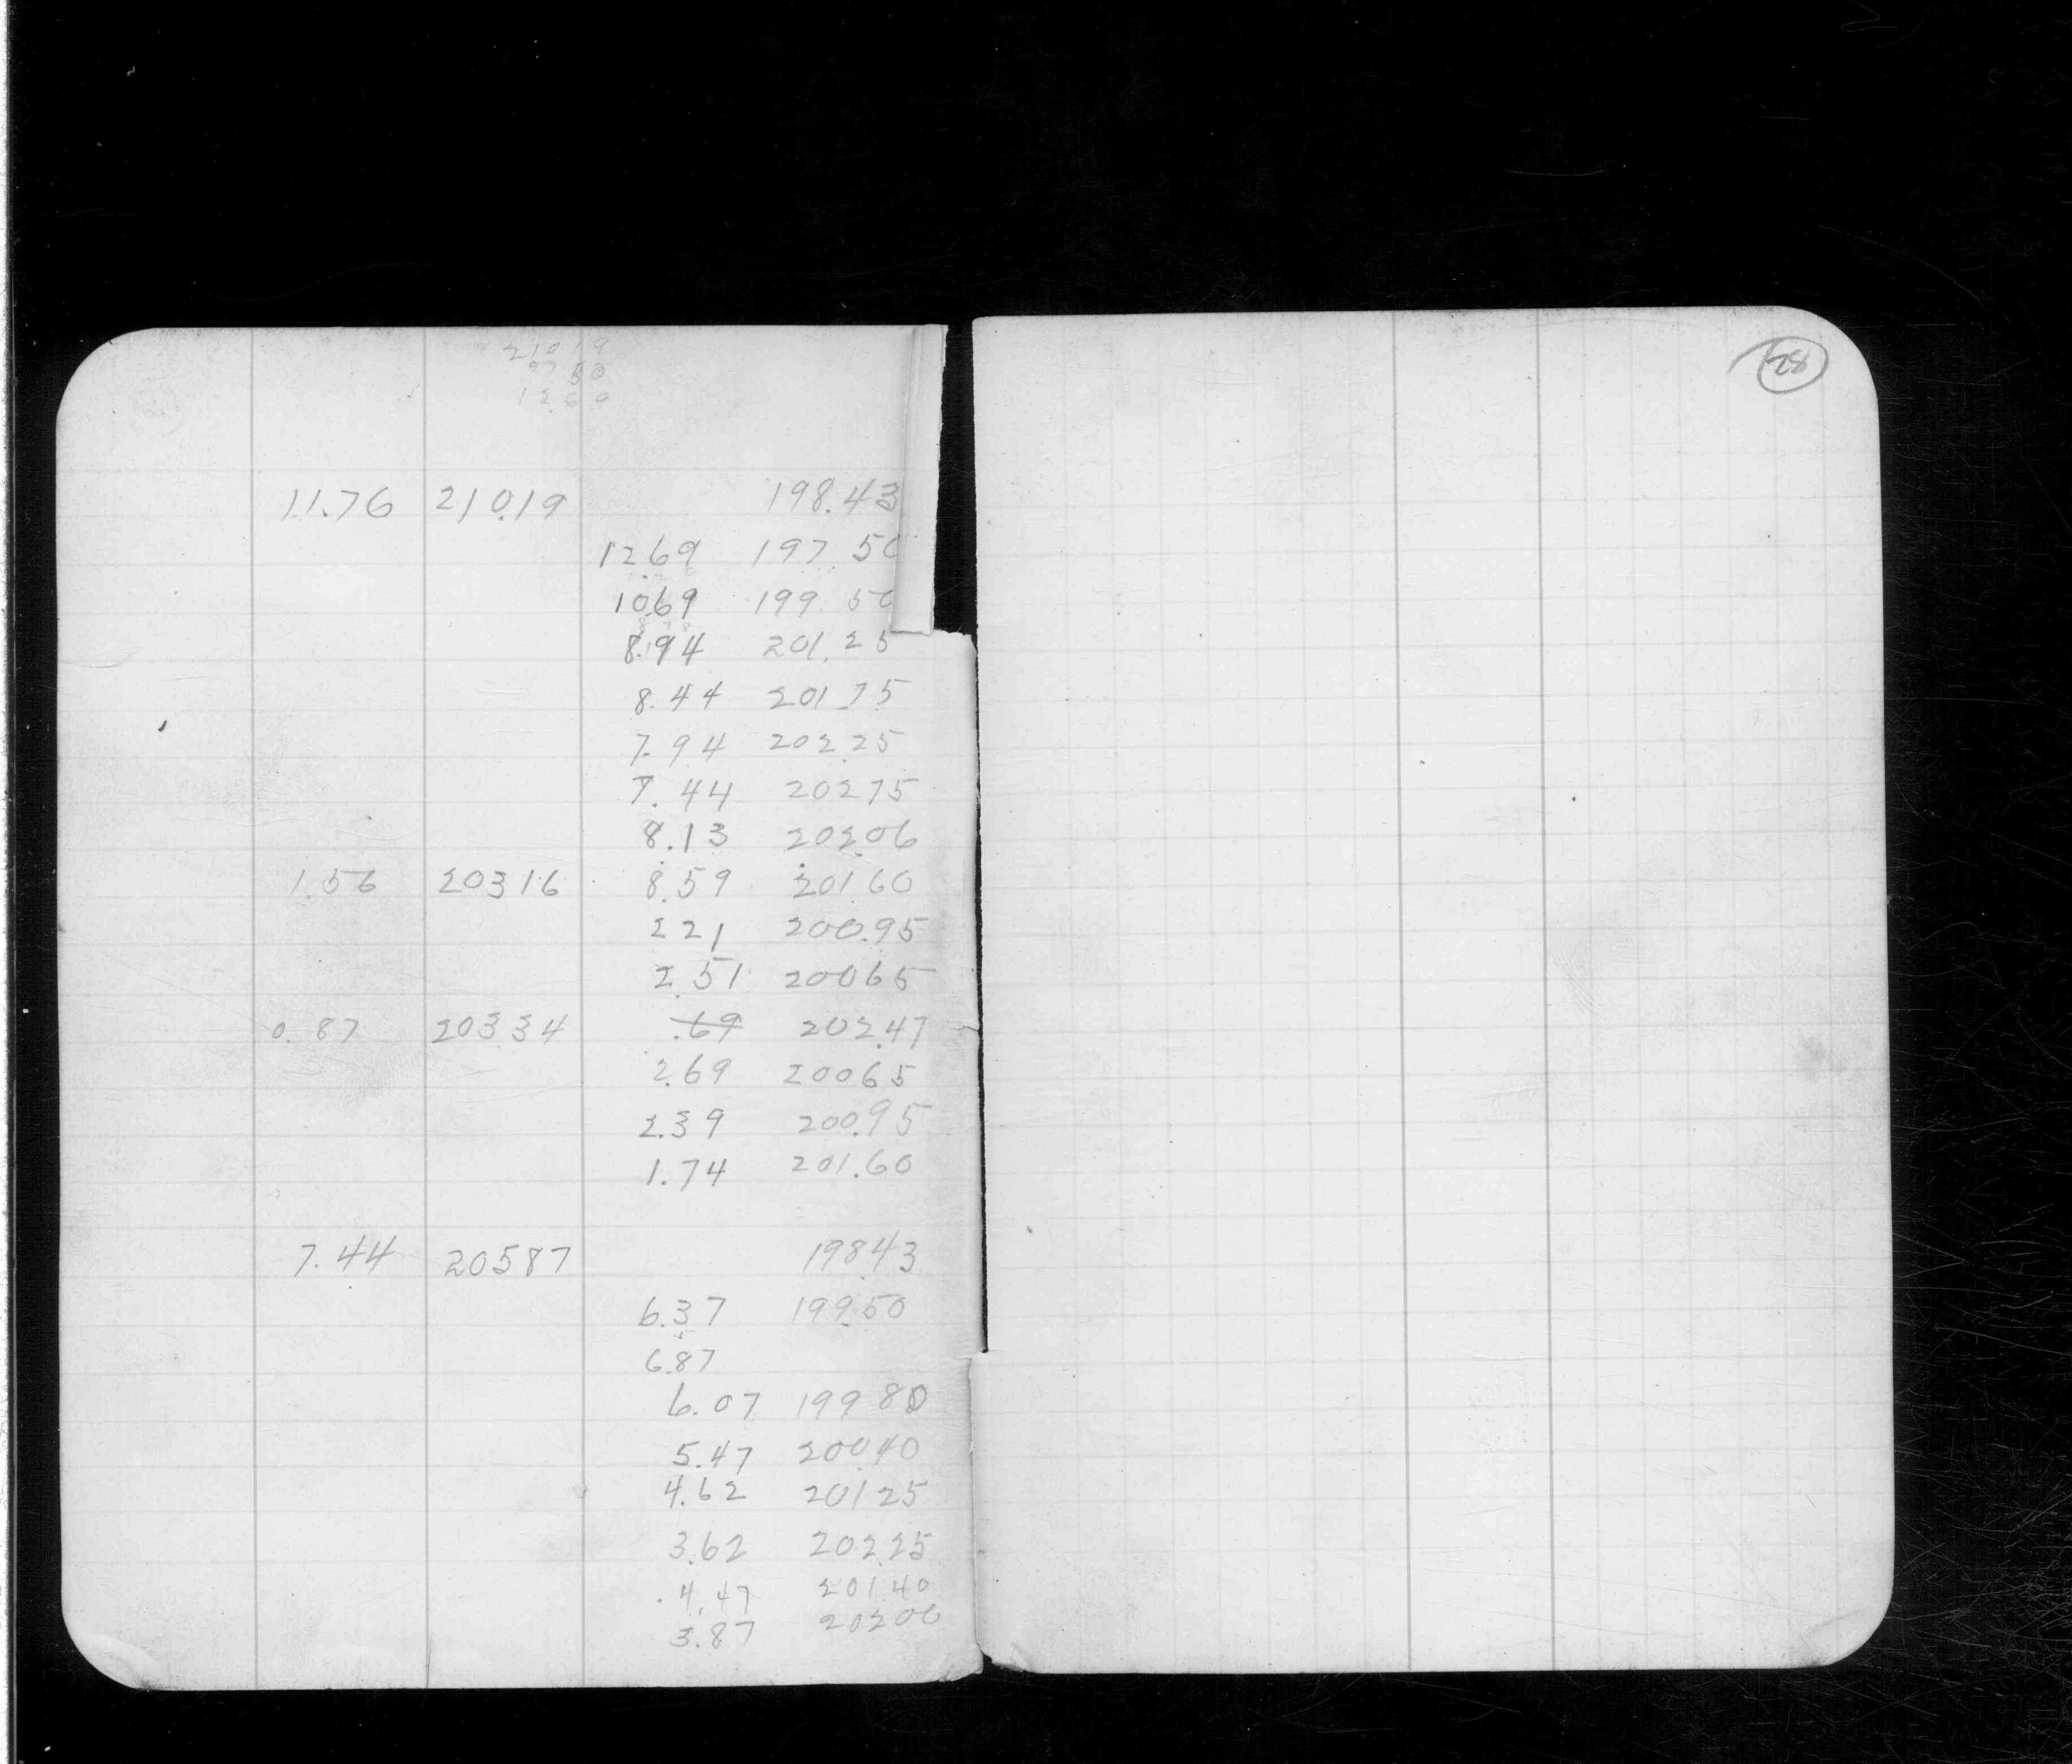 21019
9750
1269
11.76 210.19 198.43
12.69 197.50
10.69 199.50
8.94 201.25
8.44 201.75
7.94 202.25
7.44 20275
8.13 202.06
1.56 20316 8.59 201.60
221 200.95
2.51 20065
0.87 20334 .69 202.47
2.69 20065
2.39 200.95
1.74 201.60
7.44 20587 19843
6.37 199.50
6.87
6.07 19980
5.47 20040
4.62 20125
3.62 202.25
4.47 20140
3.87 20200
28